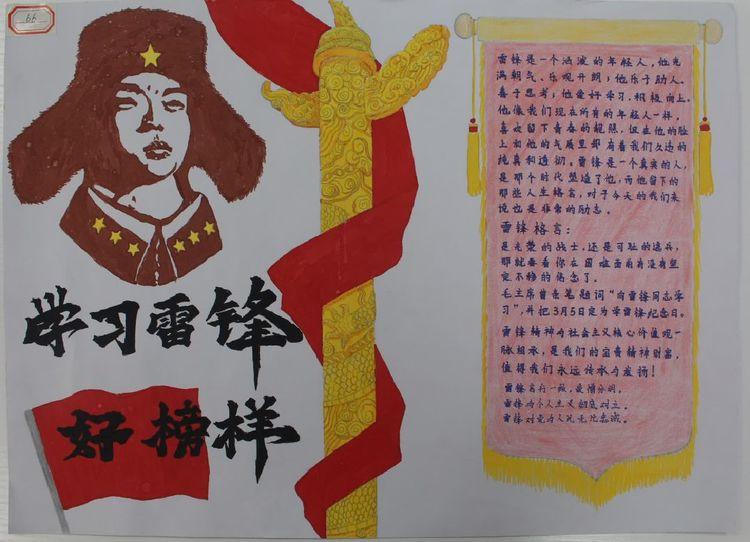 66
学习雷锋
好榜样
雷锋是一个活泼的年轻人,他充
满朝气、乐观开朗;他乐于助人、
善于思考;他爱好学习、积极向上。
他像我们现在所有的年轻人一样,
喜欢留下青春的靓照,但在他的脸
上和他的气质里却有着我们久违的
纯真和透彻。雷锋是一个真实的人,
是那个时代塑造了他,而他留下的
那些人生格言,对于今天的我们来
说也是非常的励志。
雷锋格言:
是光荣的战士,还是可耻的逃兵,
那就要看你在困难面前有没有坚
定不移的信念了。
毛主席曾亲笔题词“向雷锋同志学
习”,并把3月5日定为学雷锋纪念日。
雷锋精神与社会主义核心价值观一
脉相承,是我们的宝贵精神财富,
值得我们永远传承与发扬!
雷锋言行一致,爱憎分明。
雷锋与个人主义彻底对立。
雷锋对党与人民无比忠诚。